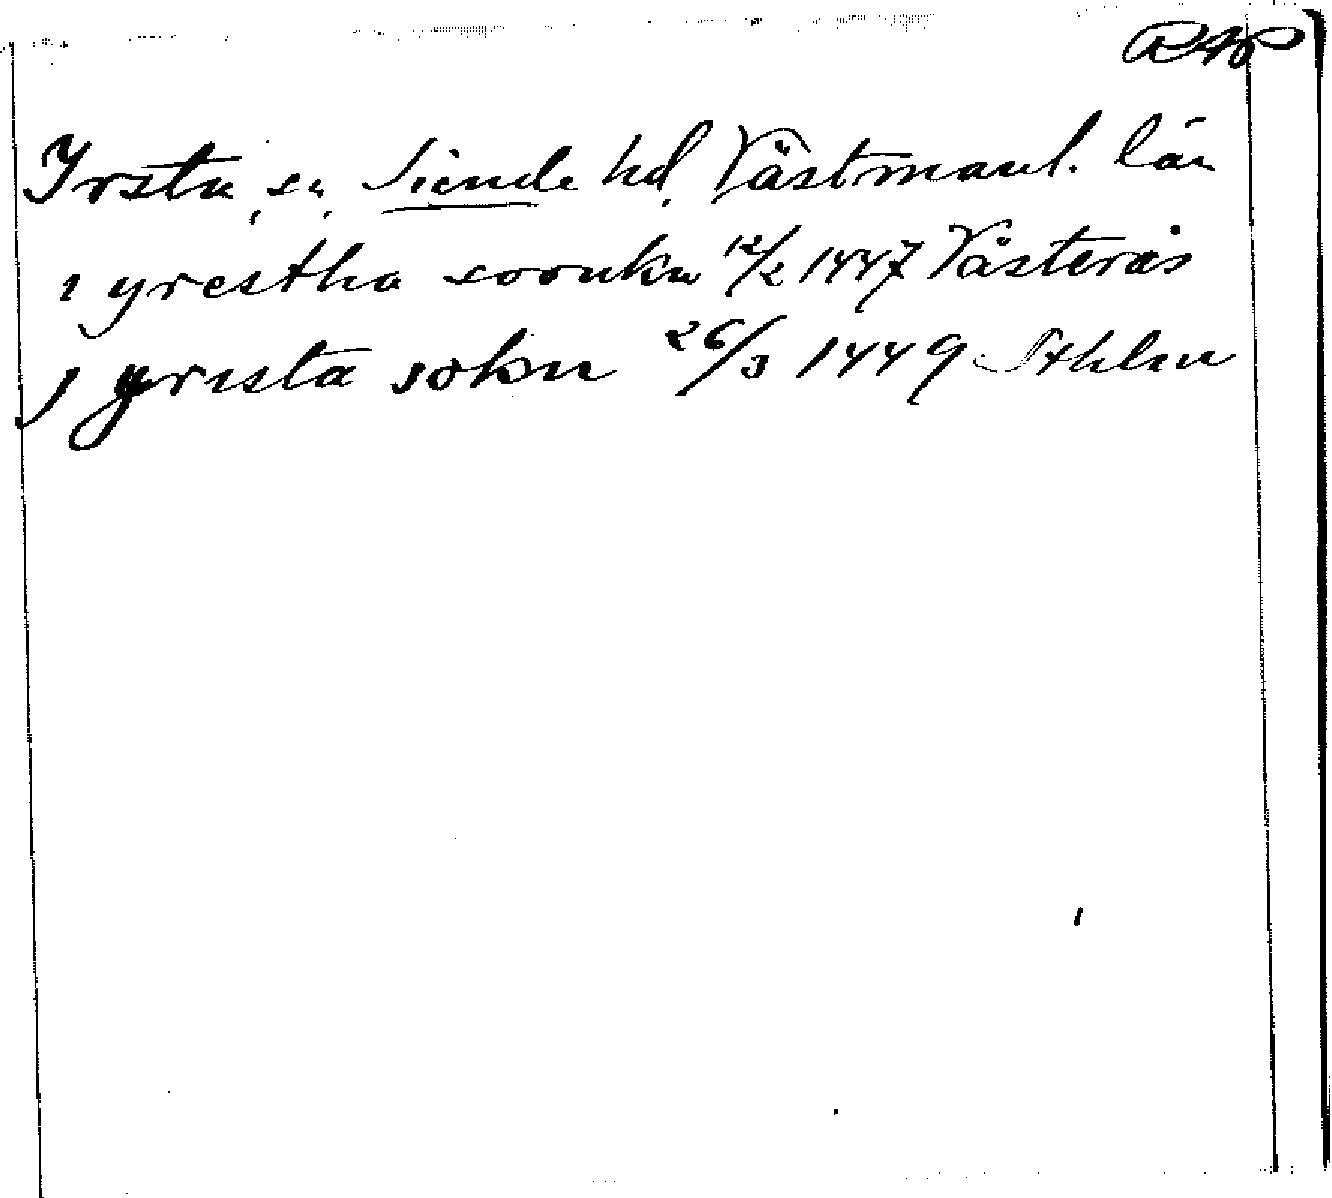 RAP
Irsta, sn, Siende hd, Västmanl. län
i yrestha soonkn 12/2 1447 Västerås
j yrista sokn 26/3 1449 Sthlm